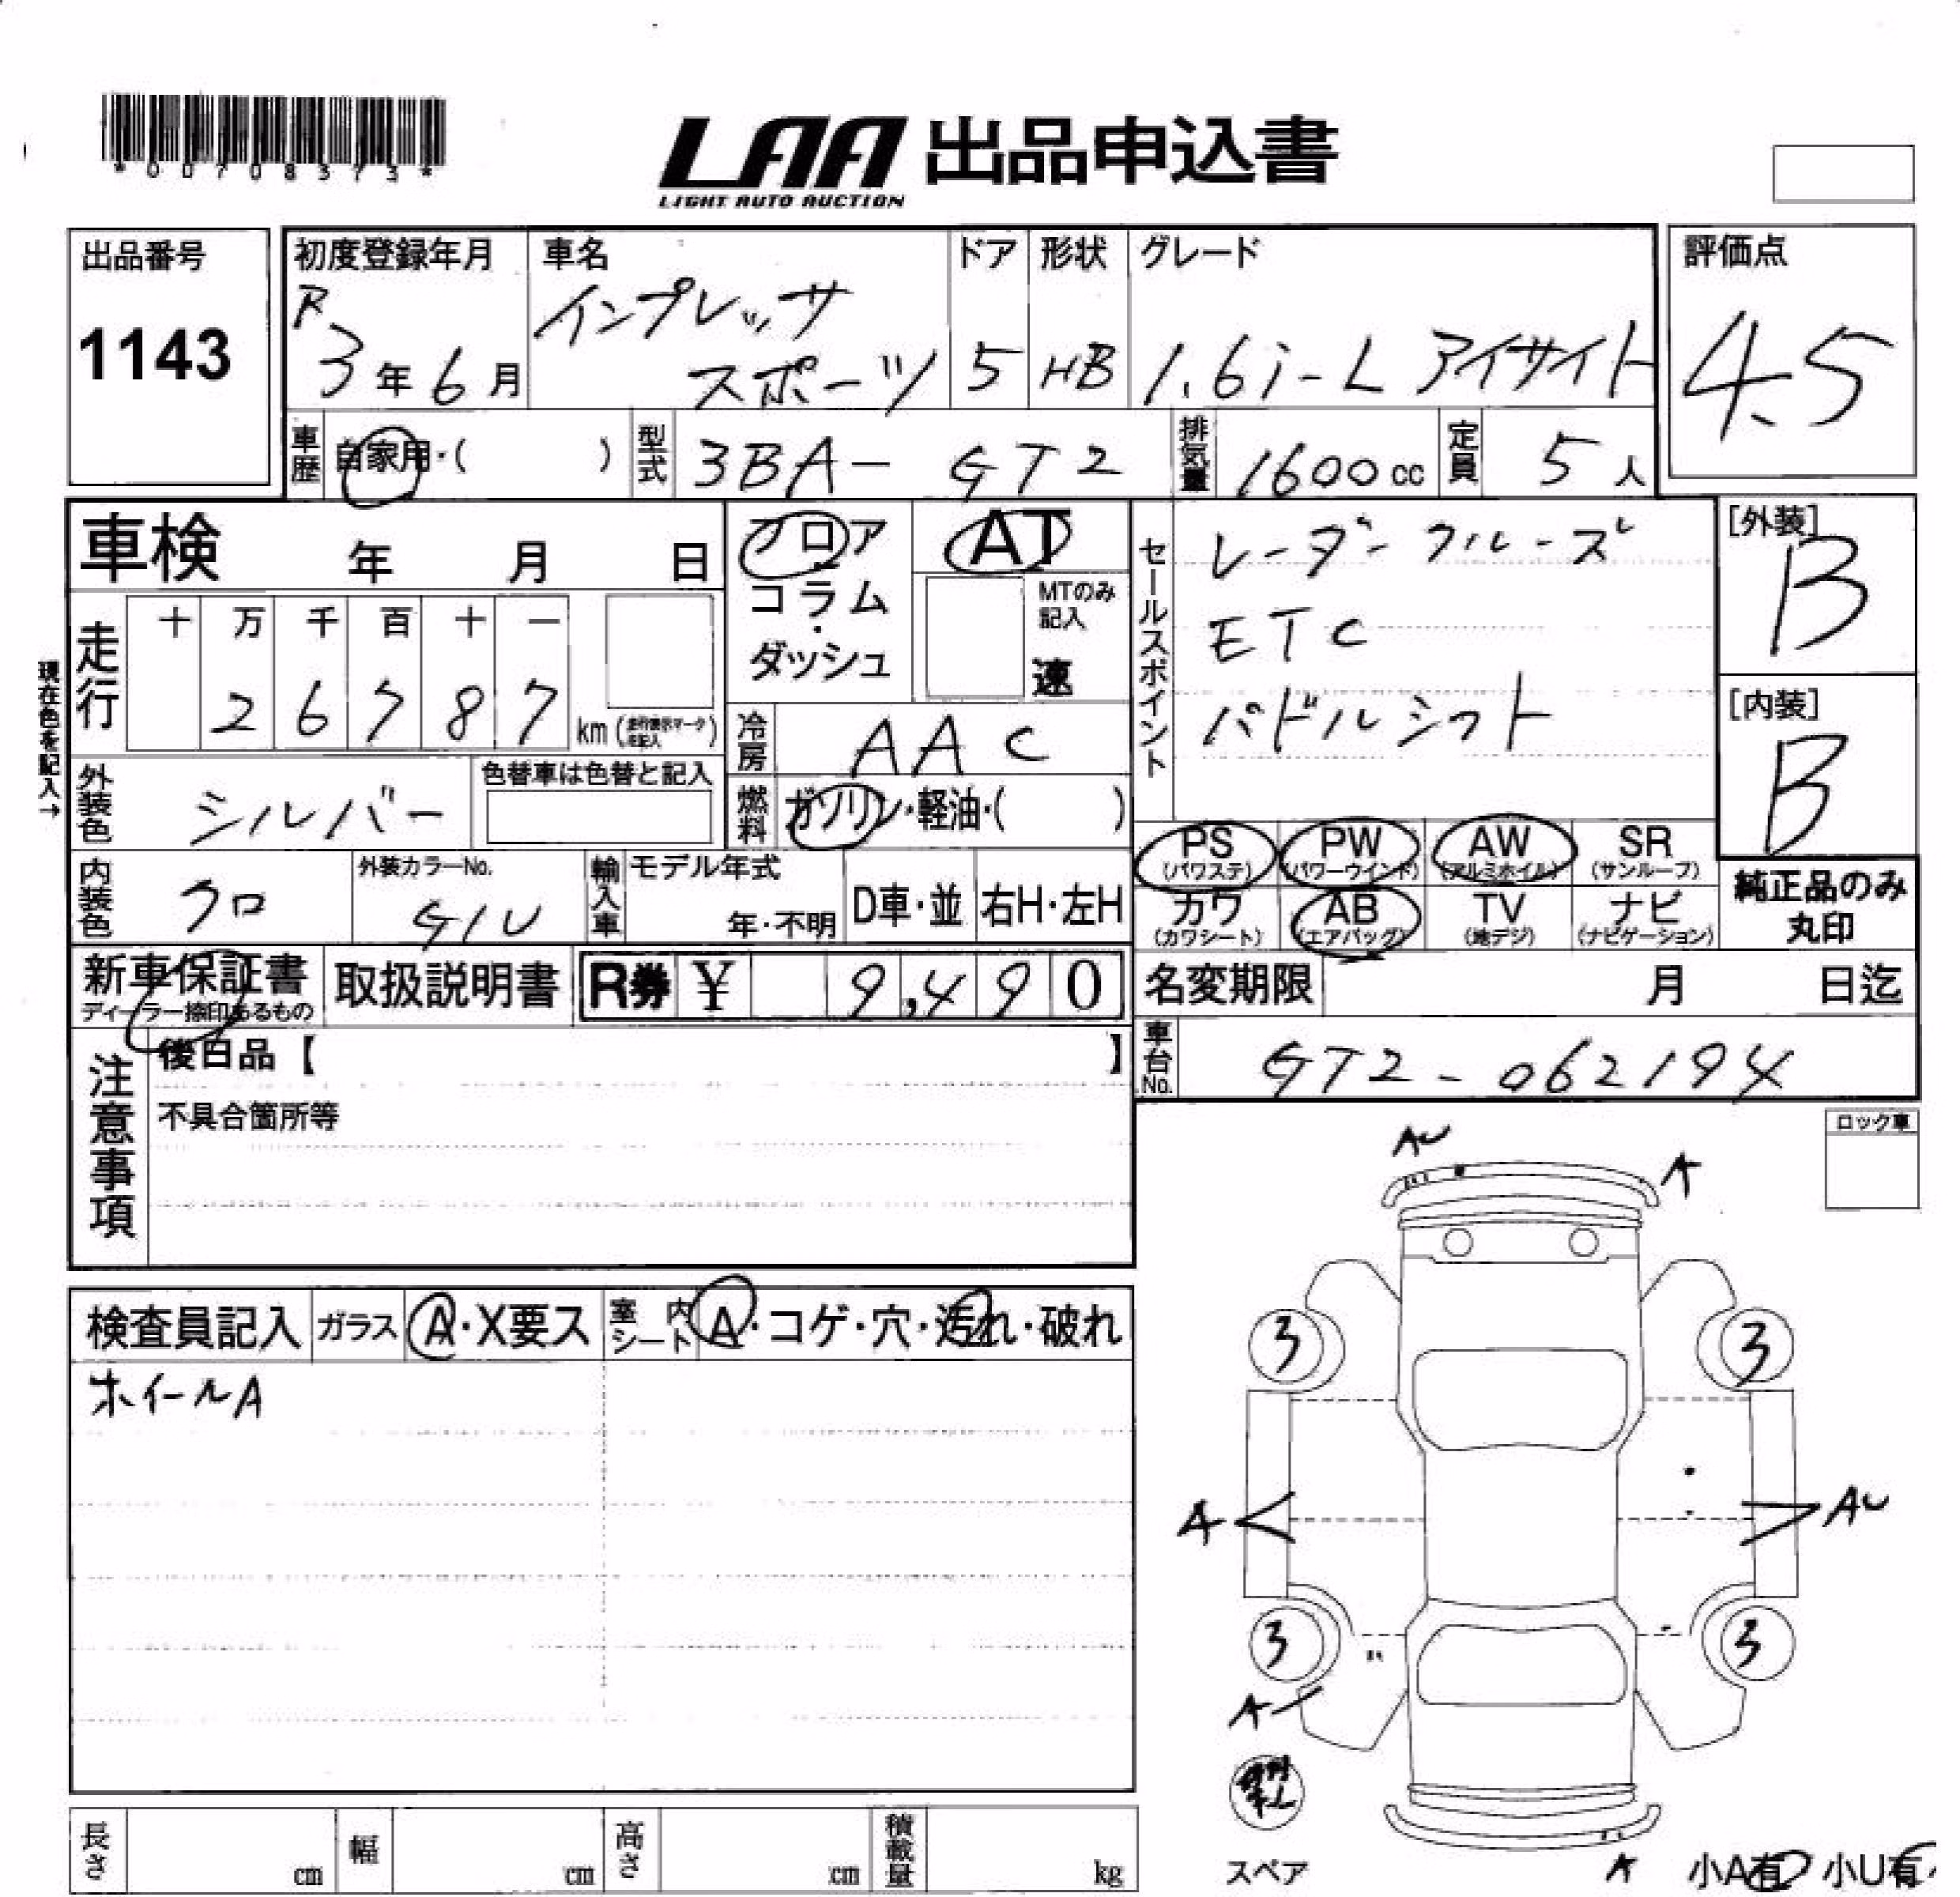 *00708373*
LAA 出品申込書
LIGHT AUTO AUCTION
出品番号
1143
初度登録年月
R 3年6月
車名
インプレッサ
スポーツ
ドア
5
形状
HB
グレード
1.6i-L アイサイト
評価点
4.5
車歴
自家用・( )
型式
3BA- GT2
排気量
1600cc
定員
5人
車検 年 月 日
走行
十 万 千 百 十 一
2 6 7 8 7
km(走行表示マーク記入)
現在色を記入→
フロア
コラム
・
ダッシュ
AT
MTのみ
記入
速
冷房
AAC
燃料
ガソリン・軽油・( )
外装色
シルバー
色替車は色替と記入
内装色
クロ
外装カラーNo.
G1U
輸入車
モデル年式
年・不明
D車・並
右H・左H
セールスポイント
レーダークルーズ
ETC
パドルシフト
[外装]
B
[内装]
B
PS
(パワステ)
PW
(パワーウインド)
AW
(アルミホイル)
SR
(サンルーフ)
カワ
(カワシート)
AB
(エアバッグ)
TV
(地デジ)
ナビ
(ナビゲーション)
純正品のみ
丸印
新車保証書
ディーラー捺印あるもの
取扱説明書
R券 ¥ 9,490
名変期限 月 日迄
車台No.
GT2-062194
注意事項
後日品【 】
不具合箇所等
ロック車
検査員記入
ガラス
A・X要ス
室内
シート
A・コゲ・穴・汚れ・破れ
ホイールA
AU
A
3
3
A
AU
3
3
A
スペア
A
小A有
小U有
長さ cm
幅 cm
高さ cm
積載量 kg